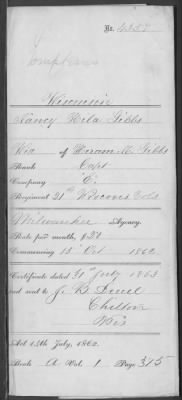 No. 4557
Wisconsin
Nancy Hila Gibbs
Wid of Hiram M. Gibbs
Rank Capt
Company "E"
Regiment 21st Wisconsin Vols
Milwaukee Agency.
Rate per month, $20
Commencing 15 Oct 1862
Certificate dated 31st July 1863
and sent to J. B.
Chilton
Wis
Act 14th July, 1862
Book A Vol. 1 Page 375